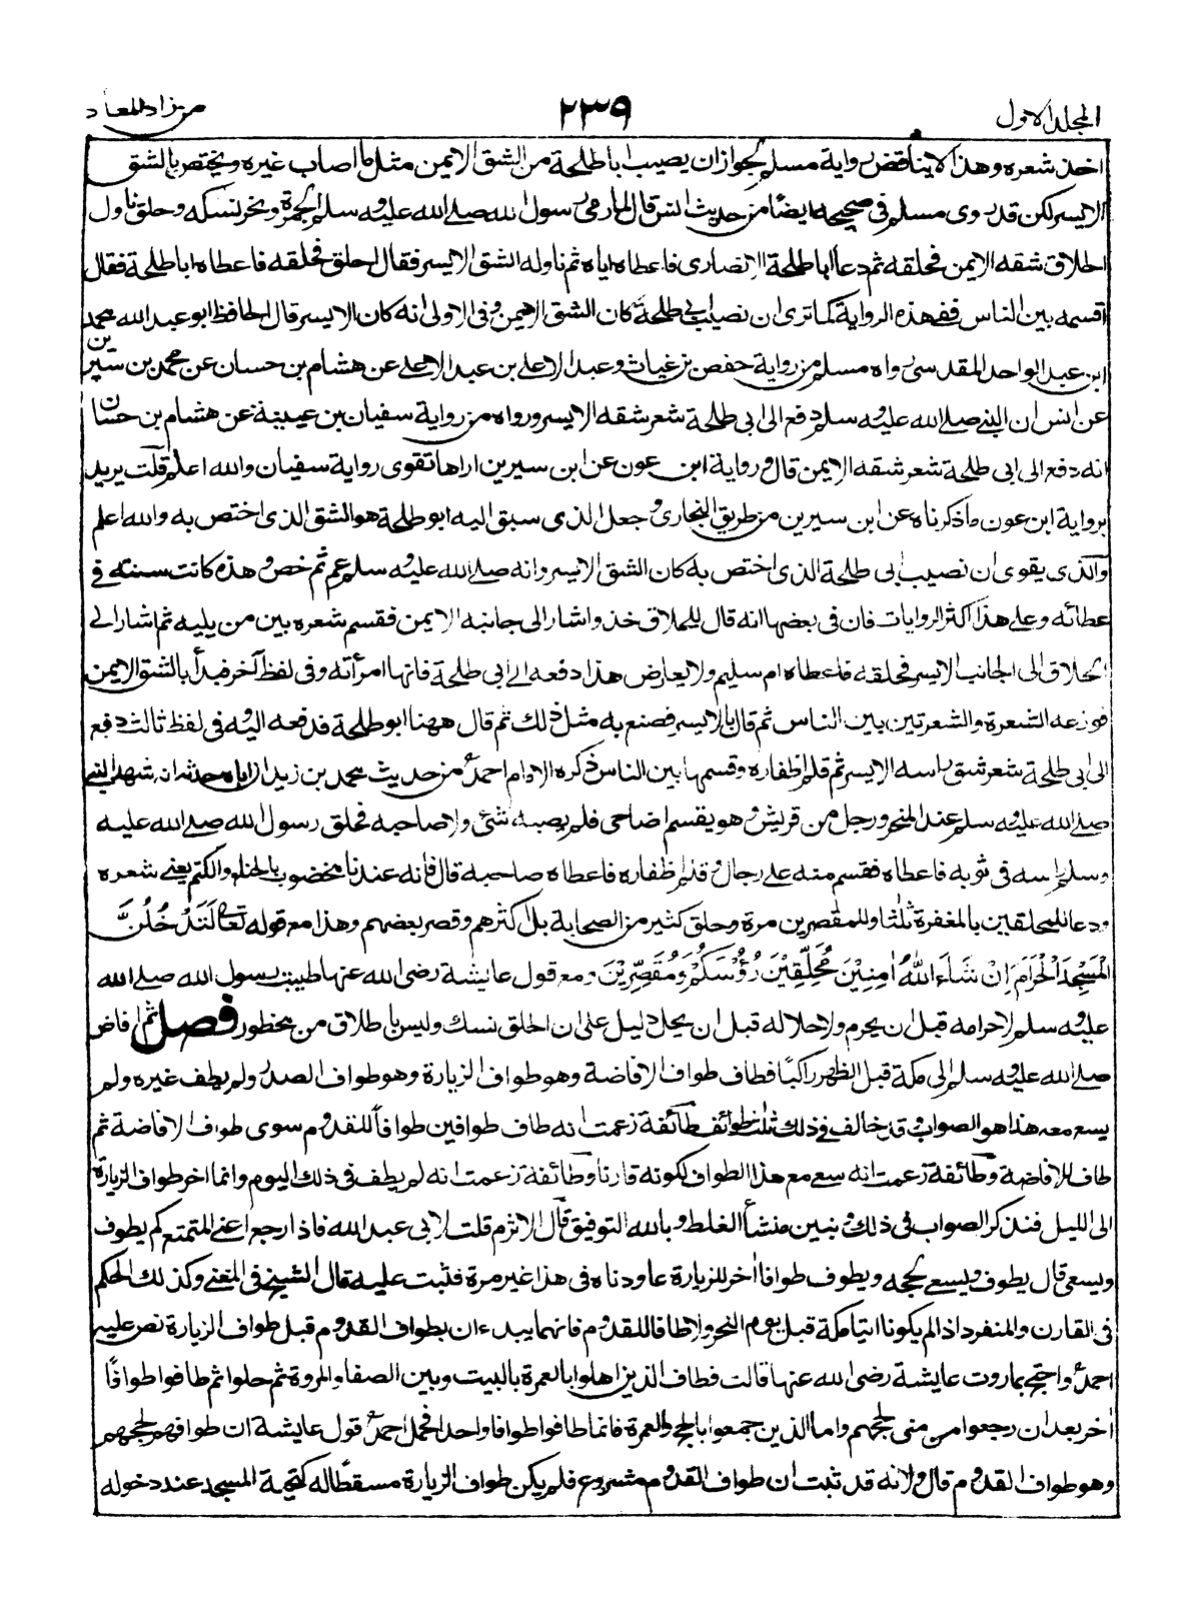 المجلد الاول
٢٣٩
من زاد المعاد
اخذ شعره وهذا لا يناقض رواية مسلم لجواز ان يصيب ابا طلحة من الشق الايمن مثل ما اصاب غيره ويختص بالشق
الايسر لكن قد روى مسلم فى صحيحه ايضا من حديث انس قال لما رمى رسول الله صلے الله عليه وسلم الجمرة ونحر نسكه وحلق ناول
الحلاق شقه الايمن فحلقه ثم دعا ابا طلحة الانصارى فاعطاه اياه ثم ناوله الشق الايسر فقال احلق فحلقه فاعطاه ابا طلحة فقال
اقسمه بين الناس ففى هذه الرواية كما ترى ان نصيب ابى طلحة كان الشق الايمن وفى الاولى انه كان الايسر قال الحافظ ابو عبد الله محمد
ابن عبد الواحد المقدسى رواه مسلم من رواية حفص بن غياث وعبد الاعلى بن عبد الاعلى عن هشام بن حسان عن محمد بن سيرين
عن انس ان النبے صلے الله عليه وسلم دفع الى ابى طلحة شعر شقه الايسر ورواه من رواية سفيان بن عيينة عن هشام بن حسان
انه دفع الى ابى طلحة شعر شقه الايمن قال و رواية ابن عون عن ابن سيرين اراها تقوى رواية سفيان والله اعلم قلت يريد
برواية ابن عون ما ذكرناه عن ابن سيرين من طريق البخارى وجعل الذى سبق اليه ابو طلحة هو الشق الذى اختص به والله اعلم
والذى يقوى ان نصيب ابى طلحة الذى اختص به كان الشق الايسر وانه صلے الله عليه وسلم عم ثم خص وهذه كانت سنته فى
عطائه وعلى هذا اكثر الروايات فان فى بعضها انه قال للحلاق خذ واشار الى جانبه الايمن فقسم شعره بين من يليه ثم اشار الى
الحلاق الى الجانب الايسر فحلقه فاعطاه ام سليم ولا يعارض هذا دفعه الى ابى طلحة فانها امرأته وفى لفظ آخر فبدأ بالشق الايمن
فوزعه الشعرة والشعرتين بين الناس ثم قال بالايسر فصنع به مثل ذلك ثم قال ههنا ابو طلحة فدفعه اليه وفى لفظ ثالث دفع
الى ابى طلحة شعر شق راسه الايسر ثم قلم اظفاره وقسمها بين الناس ذكره الامام احمد من حديث محمد بن زيد ان اباه حدثه انه شهد النبے
صلے الله عليه وسلم عند المنحر ورجل من قريش وهو يقسم اضاحى فلم يصبه شئ ولا صاحبه فحلق رسول الله صلے الله عليه
وسلم راسه فى ثوبه فاعطاه فقسم منه على رجال وقلم اظفاره فاعطاه صاحبه قال فانه عندنا مخضوب بالحناء والكتم يعنے شعره
ودعا للمحلقين بالمغفرة ثلثا وللمقصرين مرة وحلق كثير من الصحابة بل اكثرهم وقصر بعضهم وهذا مع قوله تعالى لَتَدْخُلُنَّ
الْمَسْجِدَ الْحَرَامَ اِنْ شَاءَ اللّٰهُ اٰمِنِيْنَ مُحَلِّقِيْنَ رُؤُسَكُمْ وَمُقَصِّرِيْنَ ومع قول عايشة رضى الله عنها طيبت رسول الله صلے الله
عليه وسلم لاحرامه قبل ان يحرم ولاحلاله قبل ان يحل دليل على ان الحلق نسك وليس باطلاق من محظور فصل ثم افاض
صلے الله عليه وسلم الى مكة قبل الظهر راكبًا فطاف طواف الافاضة وهو طواف الزيارة وهو طواف الصدر ولم يطف غيره ولم
يسع معه هذا هو الصواب وقد خالف فى ذلك ثلث طوائف طائفة زعمت انه طاف طوافين طوافاً للقدوم سوى طواف الافاضة ثم
طاف للافاضة وطائفة زعمت انه سعى مع هذا الطواف لكونه قارنا وطائفة زعمت انه لم يطف فى ذلك اليوم وانما اخر طواف الزيارة
الى الليل فنذكر الصواب فى ذلك ونبين منشأ الغلط وبالله التوفيق قال الاثرم قلت لابى عبد الله فاذا رجع اعنى المتمتع كم يطوف
ويسعى قال يطوف ويسعى لحجه ويطوف طوافا اخر للزيارة عاودناه فى هذا غير مرة فثبت عليه قال الشيخ فى المغنے وكذلك الحكم
فى القارن والمنفرد اذا لم يكونا اتيا مكة قبل يوم النحر ولا طافا للقدوم فانهما يبدءان بطواف القدوم قبل طواف الزيارة نص عليه
احمد واحتج بما روت عايشة رضى الله عنها قالت فطاف الذين اهلوا بالعمرة بالبيت وبين الصفا والمروة ثم حلوا ثم طافوا طوافًا
اخر بعد ان رجعوا من منى لحجهم واما الذين جمعوا بالحج والعمرة فانما طافوا طوافا واحدا فحمل احمد قول عايشة ان طوافهم لحجهم
وهو طواف القدوم قال ولانه قد ثبت ان طواف القدوم مشروع فلم يكن طواف الزيارة مسقطا له كتحية المسجد عند دخوله